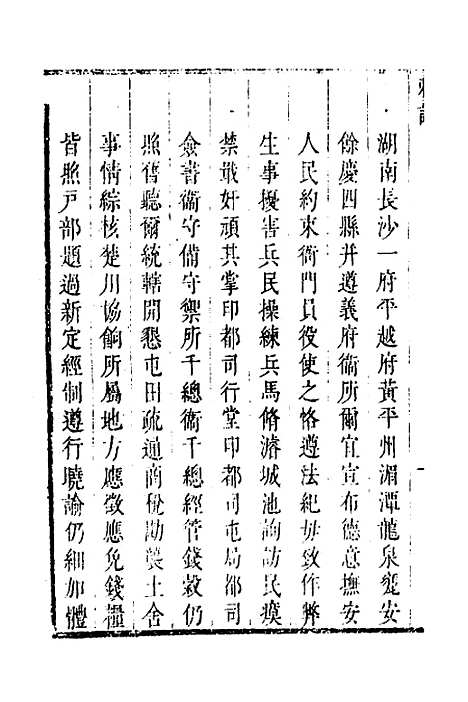 湖南長沙一府平越府黃平州湄潭龍泉甕安
餘慶四縣幷遵義府衞所爾宜宣布德意撫安
人民約束衙門員役使之恪遵法紀毋致作弊
生事擾害兵民操練兵馬脩濬城池詢訪民瘼
禁戢奸頑其掌印都司行堂印都司屯局都司
僉書衞守備守禦所千總衞千總經管錢穀仍
照舊聽爾統轄開懇屯田疏通商稅勘襲土舍
事情綜核楚川協餉所屬地方應徵應免錢糧
皆照戸部題過新定經制遵行曉諭仍細加體